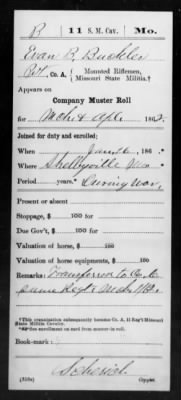 B 11 S. M. Cav. Mo.
Evan B. Buckler
Pvt., Co. A, Mounted Riflemen,
Missouri State Militia.†
Appears on
Company Muster Roll
for Mch & Apl, 1862.
Joined for duty and enrolled:
When Jan, 186 .*
Where Shelbyville Mo
Period years.* During war,
Present or absent
Stoppage, $ 100 for
Due Gov't, $ 100 for
Valuation of horse, $ 100
Valuation of horse equipments, $ 100
Remarks: Transferred to Co.
same Regt
†This organization subsequently became Co. A, 11 Reg't Missouri
State Militia Cavalry.
*As of enrollment on card from muster-in roll.
Book-mark:
(358c) Copyist.